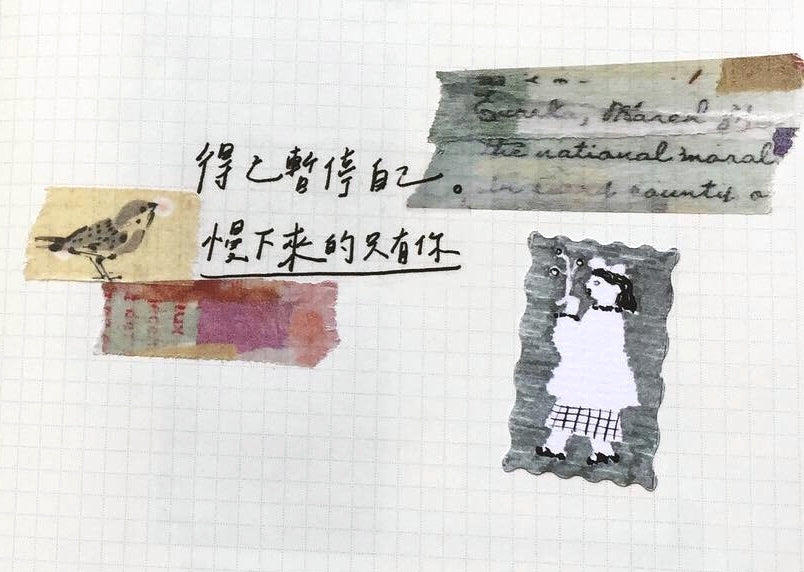 March
the national moral
county o
得已暫停自己。
慢下來的只有你